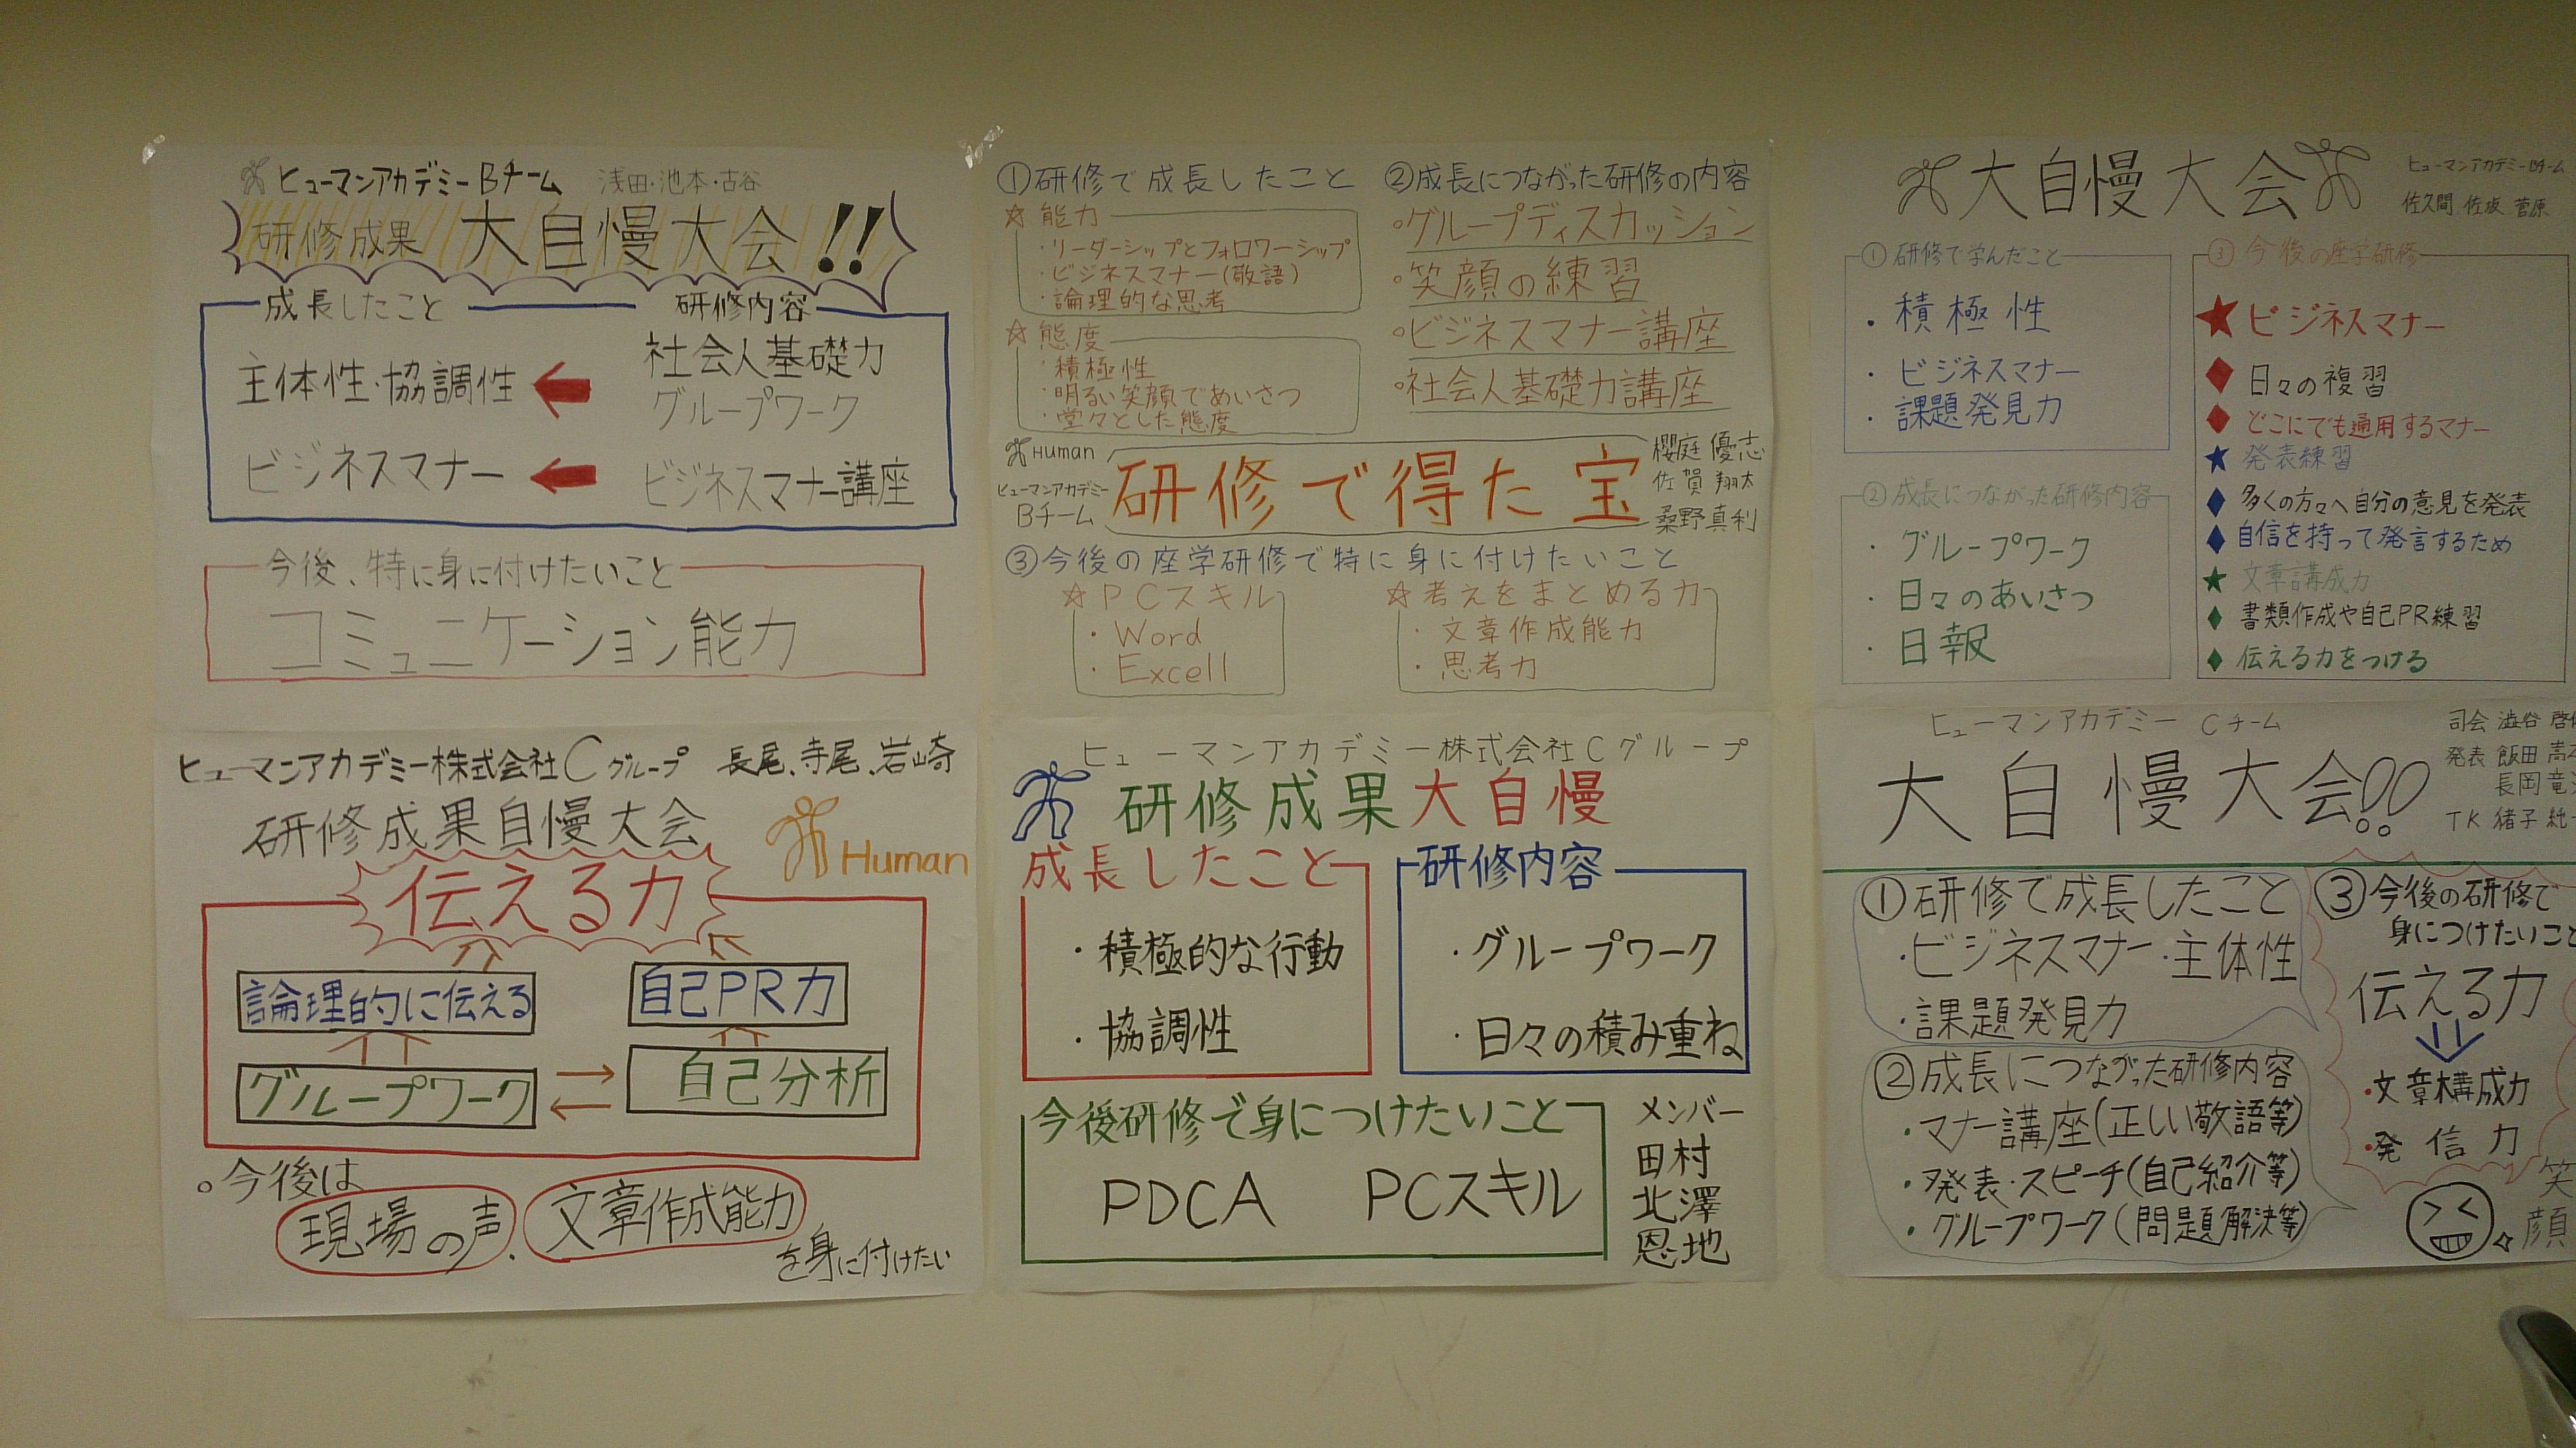 ヒューマンアカデミーBチーム 浅田・池本・古谷
研修成果 大自慢大会!!
成長したこと 研修内容
主体性・協調性 社会人基礎力
グループワーク
ビジネスマナー ビジネスマナー講座
今後、特に身に付けたいこと
コミュニケーション能力
①研修で成長したこと
☆能力
・リーダーシップとフォロワーシップ
・ビジネスマナー(敬語)
・論理的な思考
☆態度
・積極性
・明るい笑顔であいさつ
・堂々とした態度
②成長につながった研修の内容
・グループディスカッション
・笑顔の練習
・ビジネスマナー講座
・社会人基礎力講座
Human
ヒューマンアカデミー
Bチーム
研修で得た宝
櫻庭 優志
佐賀 翔太
桑野真利
③今後の座学研修で特に身に付けたいこと
☆PCスキル
・Word
・Excell
☆考えをまとめる力
・文章作成能力
・思考力
大自慢大会
ヒューマンアカデミーBチーム
佐久間 佐坂 菅原
①研修で学んだこと
・積極性
・ビジネスマナー
・課題発見力
②成長につながった研修内容
・グループワーク
・日々のあいさつ
・日報
③今後の座学研修
★ビジネスマナー
◆日々の複習
◆どこにでも通用するマナー
★発表練習
◆多くの方々へ自分の意見を発表
◆自信を持って発言するため
★文章講成力
◆書類作成や自己PR練習
◆伝える力をつける
ヒューマンアカデミー株式会社Cグループ 長尾、寺尾、岩崎
研修成果自慢大会
Human
伝える力
論理的に伝える 自己PR力
グループワーク 自己分析
。今後は
現場の声、文章作成能力
を身に付けたい
ヒューマンアカデミー株式会社Cグループ
研修成果大自慢
成長したこと
・積極的な行動
・協調性
研修内容
・グループワーク
・日々の積み重ね
今後研修で身につけたいこと
PDCA PCスキル
メンバー
田村
北澤
恩地
ヒューマンアカデミー Cチーム
大自慢大会!!
司会 澁谷
発表 飯田
長岡
TK 猪子
①研修で成長したこと
・ビジネスマナー・主体性
・課題発見力
②成長につながった研修内容
・マナー講座(正しい敬語等)
・発表・スピーチ(自己紹介等)
・グループワーク(問題解決等)
③今後の研修で
身につけたいこと
伝える力
・文章構成力
・発信力
笑
顔